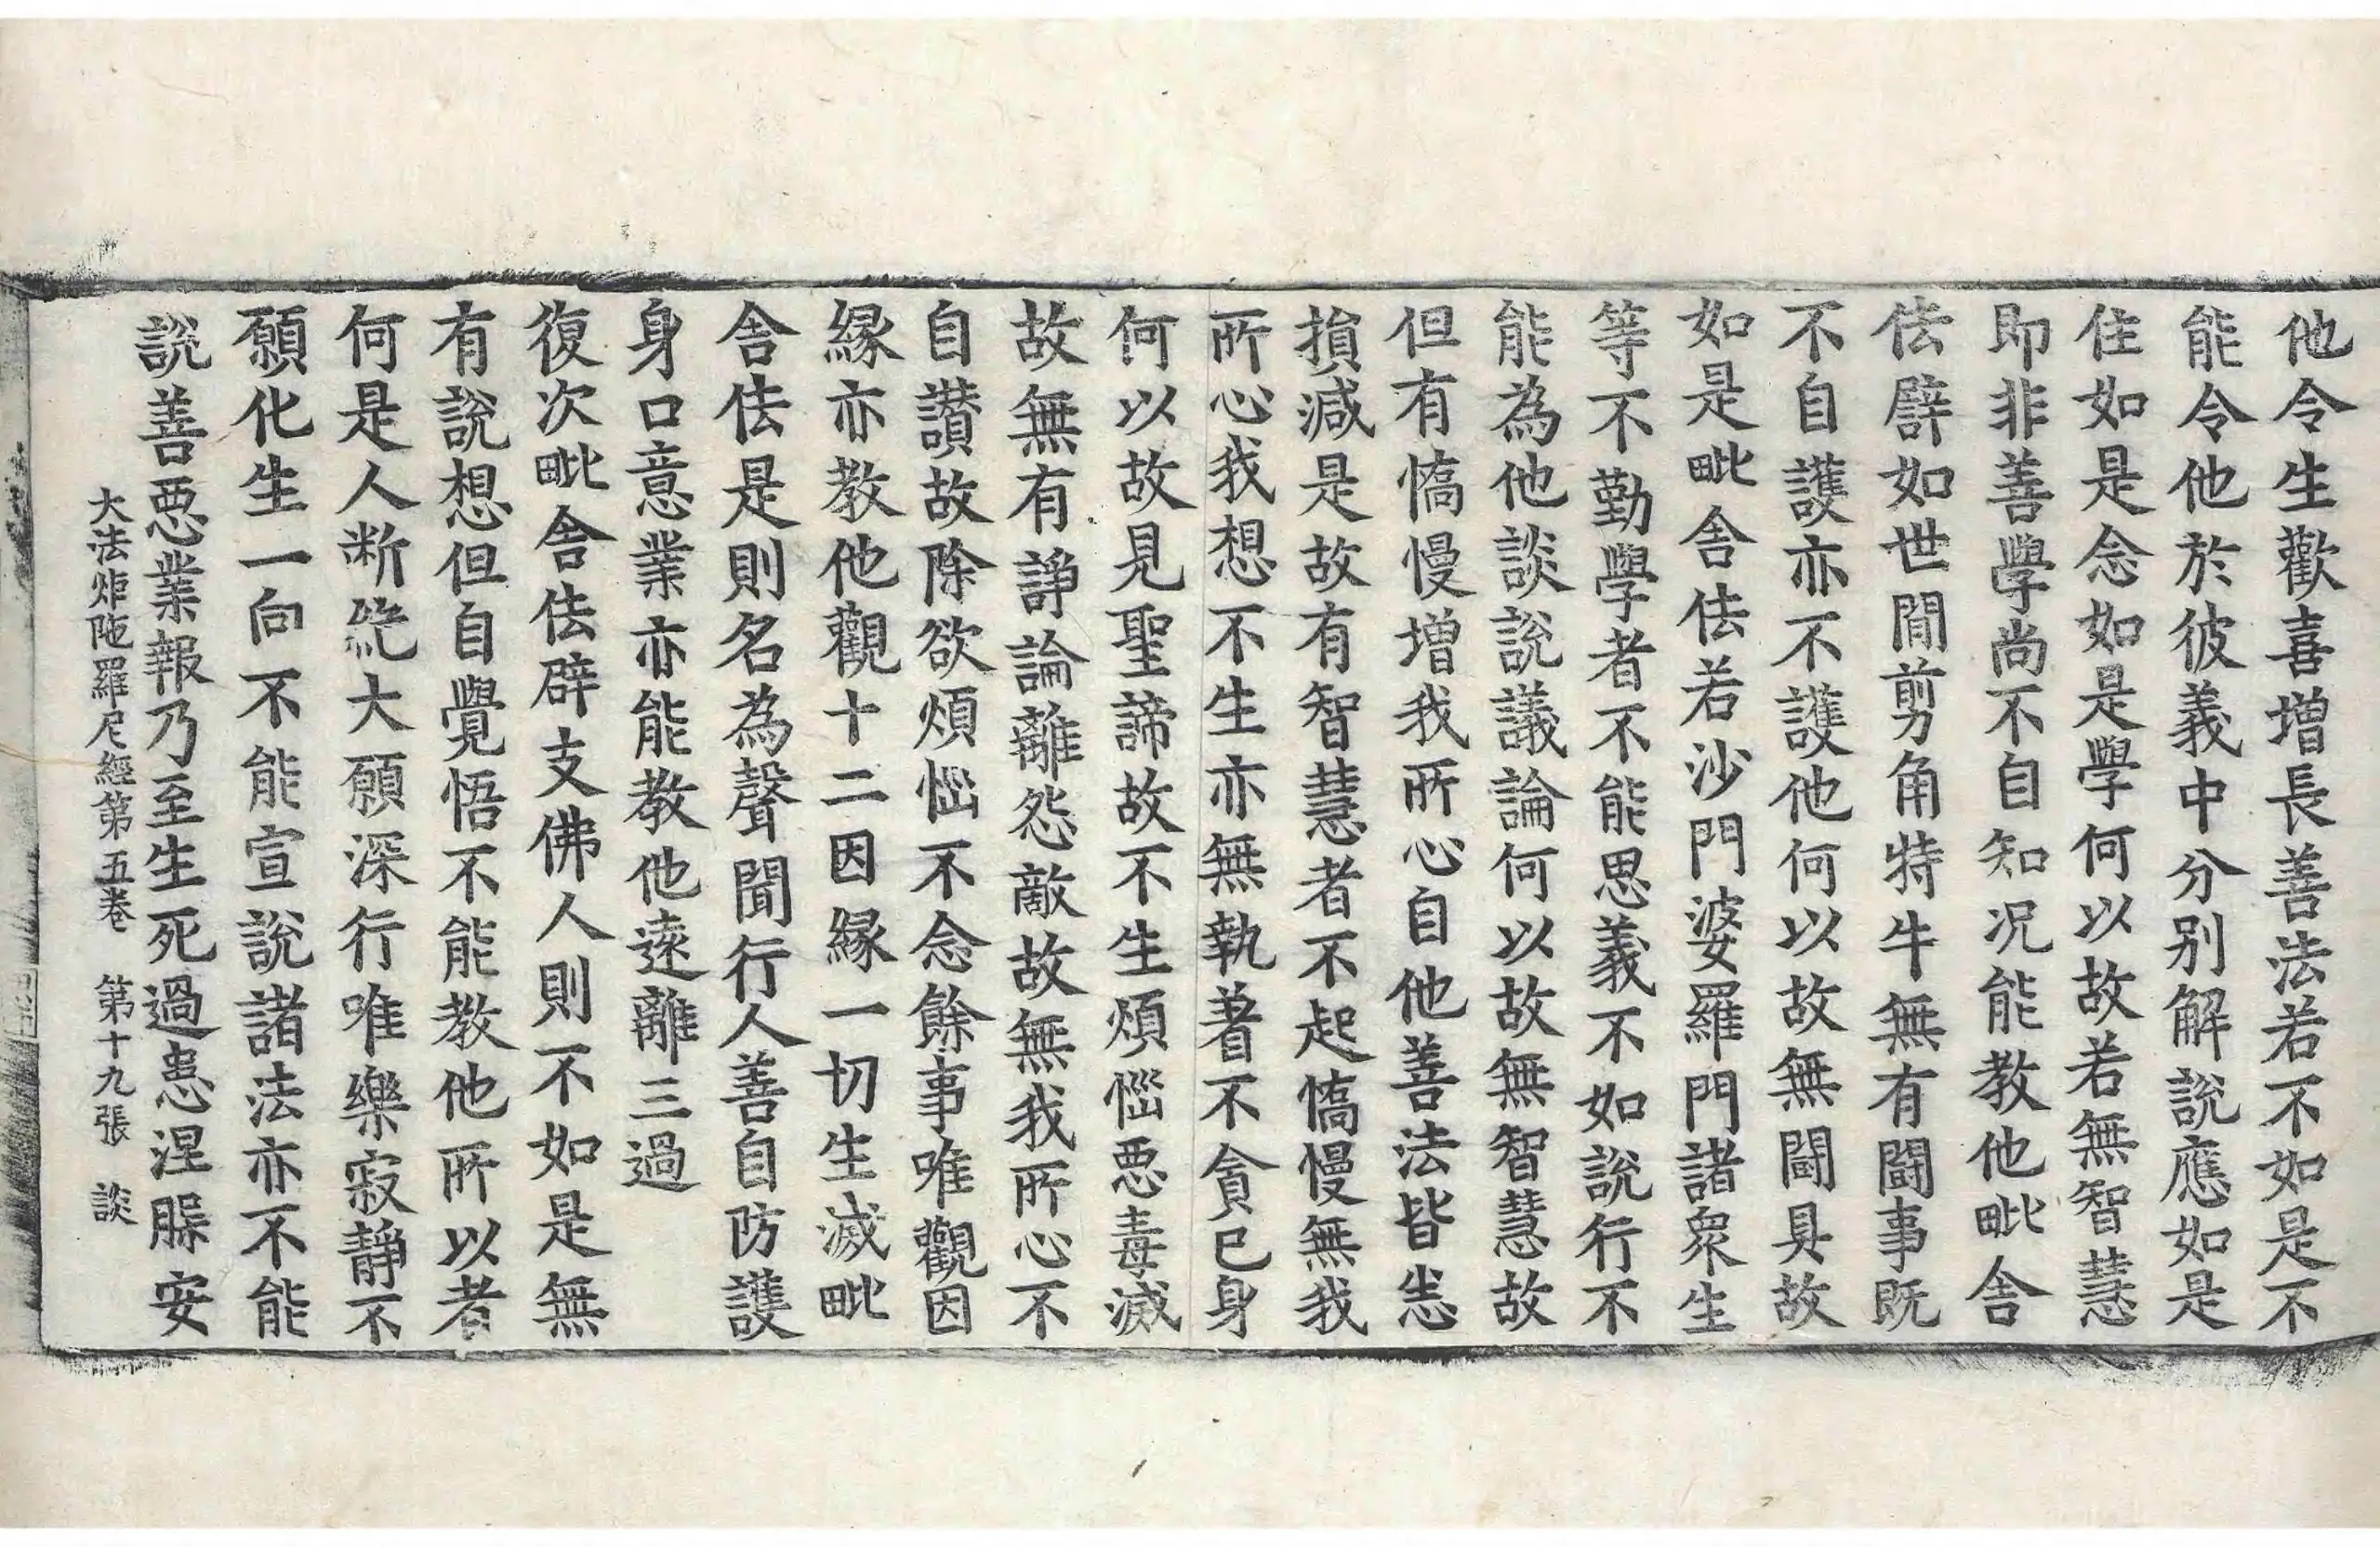 他令生歡喜增長善法若不如是不
能令他於彼義中分別解說應如是
住如是念如是學何以故若無智慧
即非善學尚不自知况能教他毗舍
佉譬如世間剪角特牛無有鬪事既
不自護亦不護他何以故無鬪具故
如是毗舍佉若沙門婆羅門諸衆生
等不勤學者不能思義不如說行不
能為他談說議論何以故無智慧故
但有憍慢增我所心自他善法皆悉
損減是故有智慧者不起憍慢無我
所心我想不生亦無執著不貪己身
何以故見聖諦故不生煩惱惡毒滅
故無有諍論離怨敵故無我所心不
自讚故除欲煩惱不念餘事唯觀因
緣亦教他觀十二因緣一切生滅毗
舍佉是則名為聲聞行人善自防護
身口意業亦能教他遠離三過
復次毗舍佉辟支佛人則不如是無
有說想但自覺悟不能教他所以者
何是人断絶大願深行唯樂寂靜不
願化生一向不能宣說諸法亦不能
說善惡業報乃至生死過患涅槃安
大法炬陁羅尼經第五卷　第十九張　談